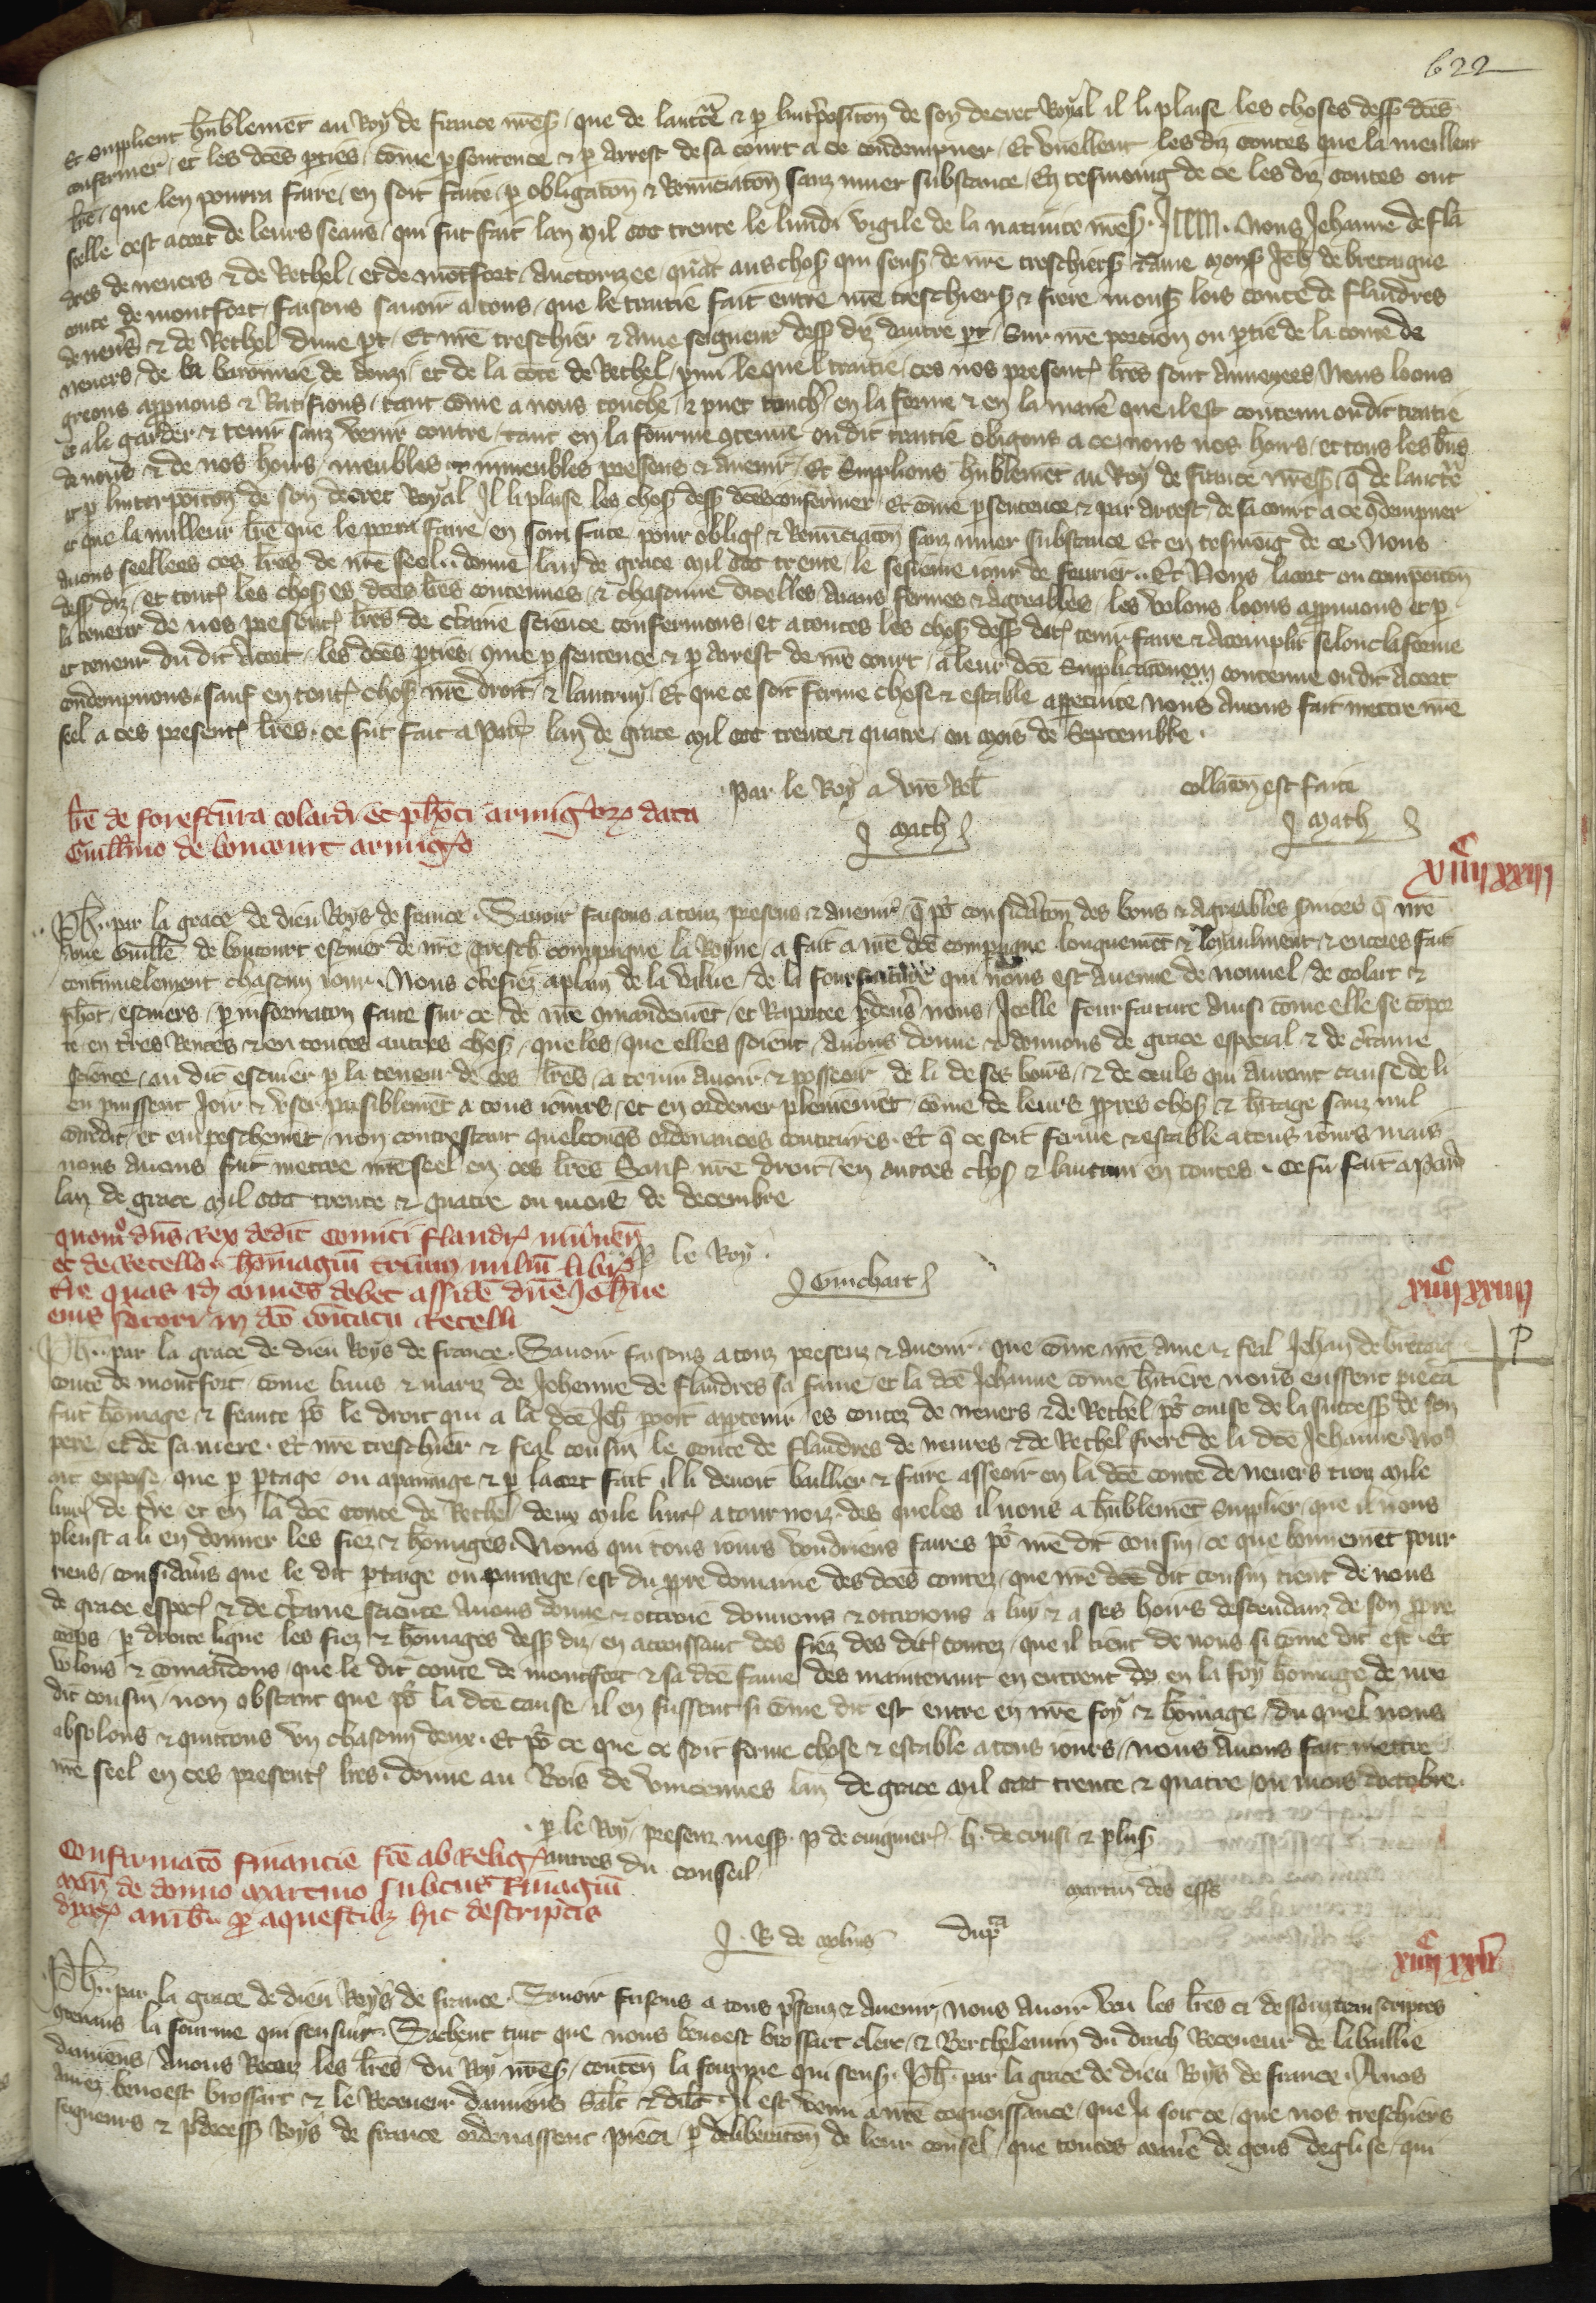 622
Et supplient hūblement au Roy de france nr̄es. que de lauct̄e & p lint̄posicōn de son decret Royal il li plaise les choses dess dc̄es
confermer, et les dc̄es pties, cōme p sentence & p arrest de sa court a ce condempner, Et vueillent les diz contes que la meilleur
lr̄e, que len pourra faire, en soit faite, p obligatōn & Renūciatōn sanz muer substance, En tesmoing de ce les diz contes ont
seelle cest acort de leurs seaus, qui fut fait lan mil ccc trente le lundi vigile de la natiuite nr̄es. Nous Jehanne de flā
dres de neuers & de Rethel, et de mōtfort, auctorizee, quāt aus choses qui sensuient de nr̄e treschiers & ame mons Jeh̄ de bretaigne
conte de montfort, faisons sauoir a tous, que le traitie fait entre nr̄e treschiers & frere mons lois conte de flandres
de neūs & de Rethel dune pt, Et nr̄e treschier & ame seigneur dess dit dautre pt, Sur nr̄e porcion ou ptie de la conte de
neuers, de la baronnie de donzi, et de la cōte de Rethel, parmi lequel traitie, ces nos present lr̄es sont annexees, Nous loons
greons appuons & Ratefions, tant cōme a nous touche, & puet touch̄ en la forme & en la manie que il est contenu ou dit traitie
et a le garder & tenir sanz venir contre, tant en la fourme 9tenue ou dit traitie obligons a ce nous nos hoirs, et tous les bn̄s
de nous & de nos hoirs, meubles & nmeubles presens & auenir, Et Supplions hūblemēt au Roy de france nr̄es q̄ de lauctē
et p linterpoicōn de son decret Royal Il li plaise les chos dess dc̄es confermer, Et cōme p sentence & par arrest, de sa court a ce 9dempner
et que la milleur lr̄e que le porra faire, en soit faite pour oblig & Renūciatōn sanz muer substance Et en tesmoig de ce Nous
auons seellees ces lr̄es de nr̄e seel. donne lan de grace mil ccc trente, le sesieme iour de feurier. Et Nous lacort ou composicōn
dess diz, et tout les chos es dc̄es lr̄es contenues, & chascune dicelles aians fermes & agreables, les volons loons appuuons et p
la teneur de nos present lr̄es de ct̄aine science confermons, et a toutes les chos dess dict tenir faire & acomplir selonc la forme
et teneur du dit acort, les dc̄es pties, 9me p sentence & p arrest de nr̄e court, a leur dc̄e Supplicacionem contenue ou dit acort
condempnons, sauf en tout chos nr̄e droit, & lautruy, Et que ce soit ferme chose & estable a ppetuite nous auons fait mettre nr̄e
seel a ces present lr̄es, ce fut fait a Paris lan de grace mil ccc trente & quatre, ou mois de Septembre.
Par le Roy a vr̄e Rel̄
collatōn est faite
Math
Math
lr̄e de forefcūra colardi et ph̄oti armig̃oꝝ data
Guill̄mo de boncourt armig̃o
xiiiic xxiii
Ph̄. par la grace de dieu Roys de france. Sauoir faisons a touz presens & auenir, q̄ po considatōn des bons & agreables seruices q̄ nr̄e
ame Guille de boncourt escuier de nr̄e tresch̄ compaigne la Royne, a fait a nr̄e dc̄e compaigne longuemēt & loyaulment, & encores fait
continuelement chascun iour. Nous cefiez a plain de la value, de la fourfaiture qui nous est auenue de nouuel, de colart &
phōt, escuiers, p informatōn faite sur ce, de nr̄e 9mandemēt, et Raportee pdeūs nous, Icelle fourfaiture ainsi cōme elle se cōpor
te en tr̄es Rentes & en toutes autres choses, queles, que elles soient, Auons donne & donnons de grace especial & de ct̄aine
science, au dit escuier p la teneur de ces lr̄es, a tenir auoir & posseoir de li de ses hoirs, & de ceuls qui auront cause de li
en puissent Joir & vser paisiblemēt a tous iours, et en ordener plenieemēt, cōme de leurs ppres choses & hītage sanz nul
contdit, et empeschemēt, non contrestant quelconqs ordenances contraires. Et q̄ ce soit ferme & estable a tous iours mais
nous auons fait mettre nr̄e seel en ces lr̄es Sauf nr̄e droit en autres chos & lautrui en toutes. Ce fu fait a Paris
lan de grace mil ccc trente & quatre ou mois de decembre
quom̊ dn̄s Rex dedit comiti flandr niuneñ
et de Retello homagiū trium miliū libr
tr̄e quas idem comes debet assidē dn̄e Joh̄ne
eius sorori in dc̄o comitatu Retelli
p le Roy.
Guichart
xiiiic xxiiii
P
Ph̄. par la grace de dieu Roys de france. Sauoir faisons a touz presenz & auenir, que cōme nr̄e ame & feal Jehan de bretaig
conte de montfort, cōme baus & mariz de Jehenne de flandres sa fame, et la dc̄e Jehanne cōme hītiere nous eussent pieca
fait hōmage, & feaute po le droit qui a la dc̄e Jeh̄ pooit appteuir, es contez de neuers & de Rethel po cause de la success de son
pere, et de sa mere. Et nr̄e treschier & feal cousin le conte de flandres de neures & de Rethel frere de la dc̄e Jehanne no9
ait expose, que p ptage ou apanaige & p lacort fait il li deuoit baillier & faire asseoir en la dc̄e conte de neuers trois mile
liur de tr̄e et en la dc̄e conte de Rethel deux mile liur a tournois, des queles il nous a hūblemēt Supplier, que il nous
pleust a li en donner les fiez & hōmages. Nous qui tous iours voudriens faires po nr̄e dit cousin, ce que bonnemēt pour
riens, consideūs que le dit ptage ou panage, est du ppre domaine des dc̄es contez, que nr̄e dit cousin tient de nous
de grace espec̄ & de ct̄aine science Auons donne & ottroie donnons & ottroions a luy & a ses hoirs descendanz de son ppre
corps, p droite ligne les fiez & hōmages dess diz, en accroissant des fiez des dit contez, que il tient de nous si cōme dit est. Et
volons & comandons, que le dit conte de montfort & sa dc̄e fame des maintenant en entrent en la foy hōmage de nr̄e
dit cousin, non obstant que po la dc̄e cause, il en fussent si cōme dit est entre en nr̄e foy & hōmage, du quel nous
absolons & quittons vn chascun deux. Et po ce que ce soit ferme chose & estable a tous iours, nous auons fait mettre
nr̄e seel en ces present lr̄es. donne au Bois de vincennes lan de grace mil ccc trente & quatre, ou mois doctobre.
p le Roy, presenz mess. p de cuigner. h. de crusi & plus
autres du conseil
Confirmatō financie fc̄e ab Relig
mon̄ de donno martino
amb. p aquestibz hic descriptis
martin des essˢ
J. R de moliñs
dupᵃ
xiiiic xxv
Ph̄. par la grace de dieu Roys de france. Sauoir faisons a tous psenz & auenir, nous auoir veu les lr̄es ci dessouz transcriptes
9tenans la fourme qui sensuit. Sachent tuit que nous benoest brossart clerc, & Berthelemin du drach Receueur de la baillie
damiens, Auons Receu les lr̄es du Roy nr̄es, conteñ la fourme qui sens. Ph̄. par la grace de dieu Roys de france. A nos
amez benoest brossart & le Receueur damiens Sal̄t & dil̄t. Il est venu a nr̄e cognoissance, que ja soit ce, que nos treschiers
seigneurs & pdecess Roys de france ordenassent pieca, p deliberatōn de leur consel, que toutes manīe de gens deglise, qui